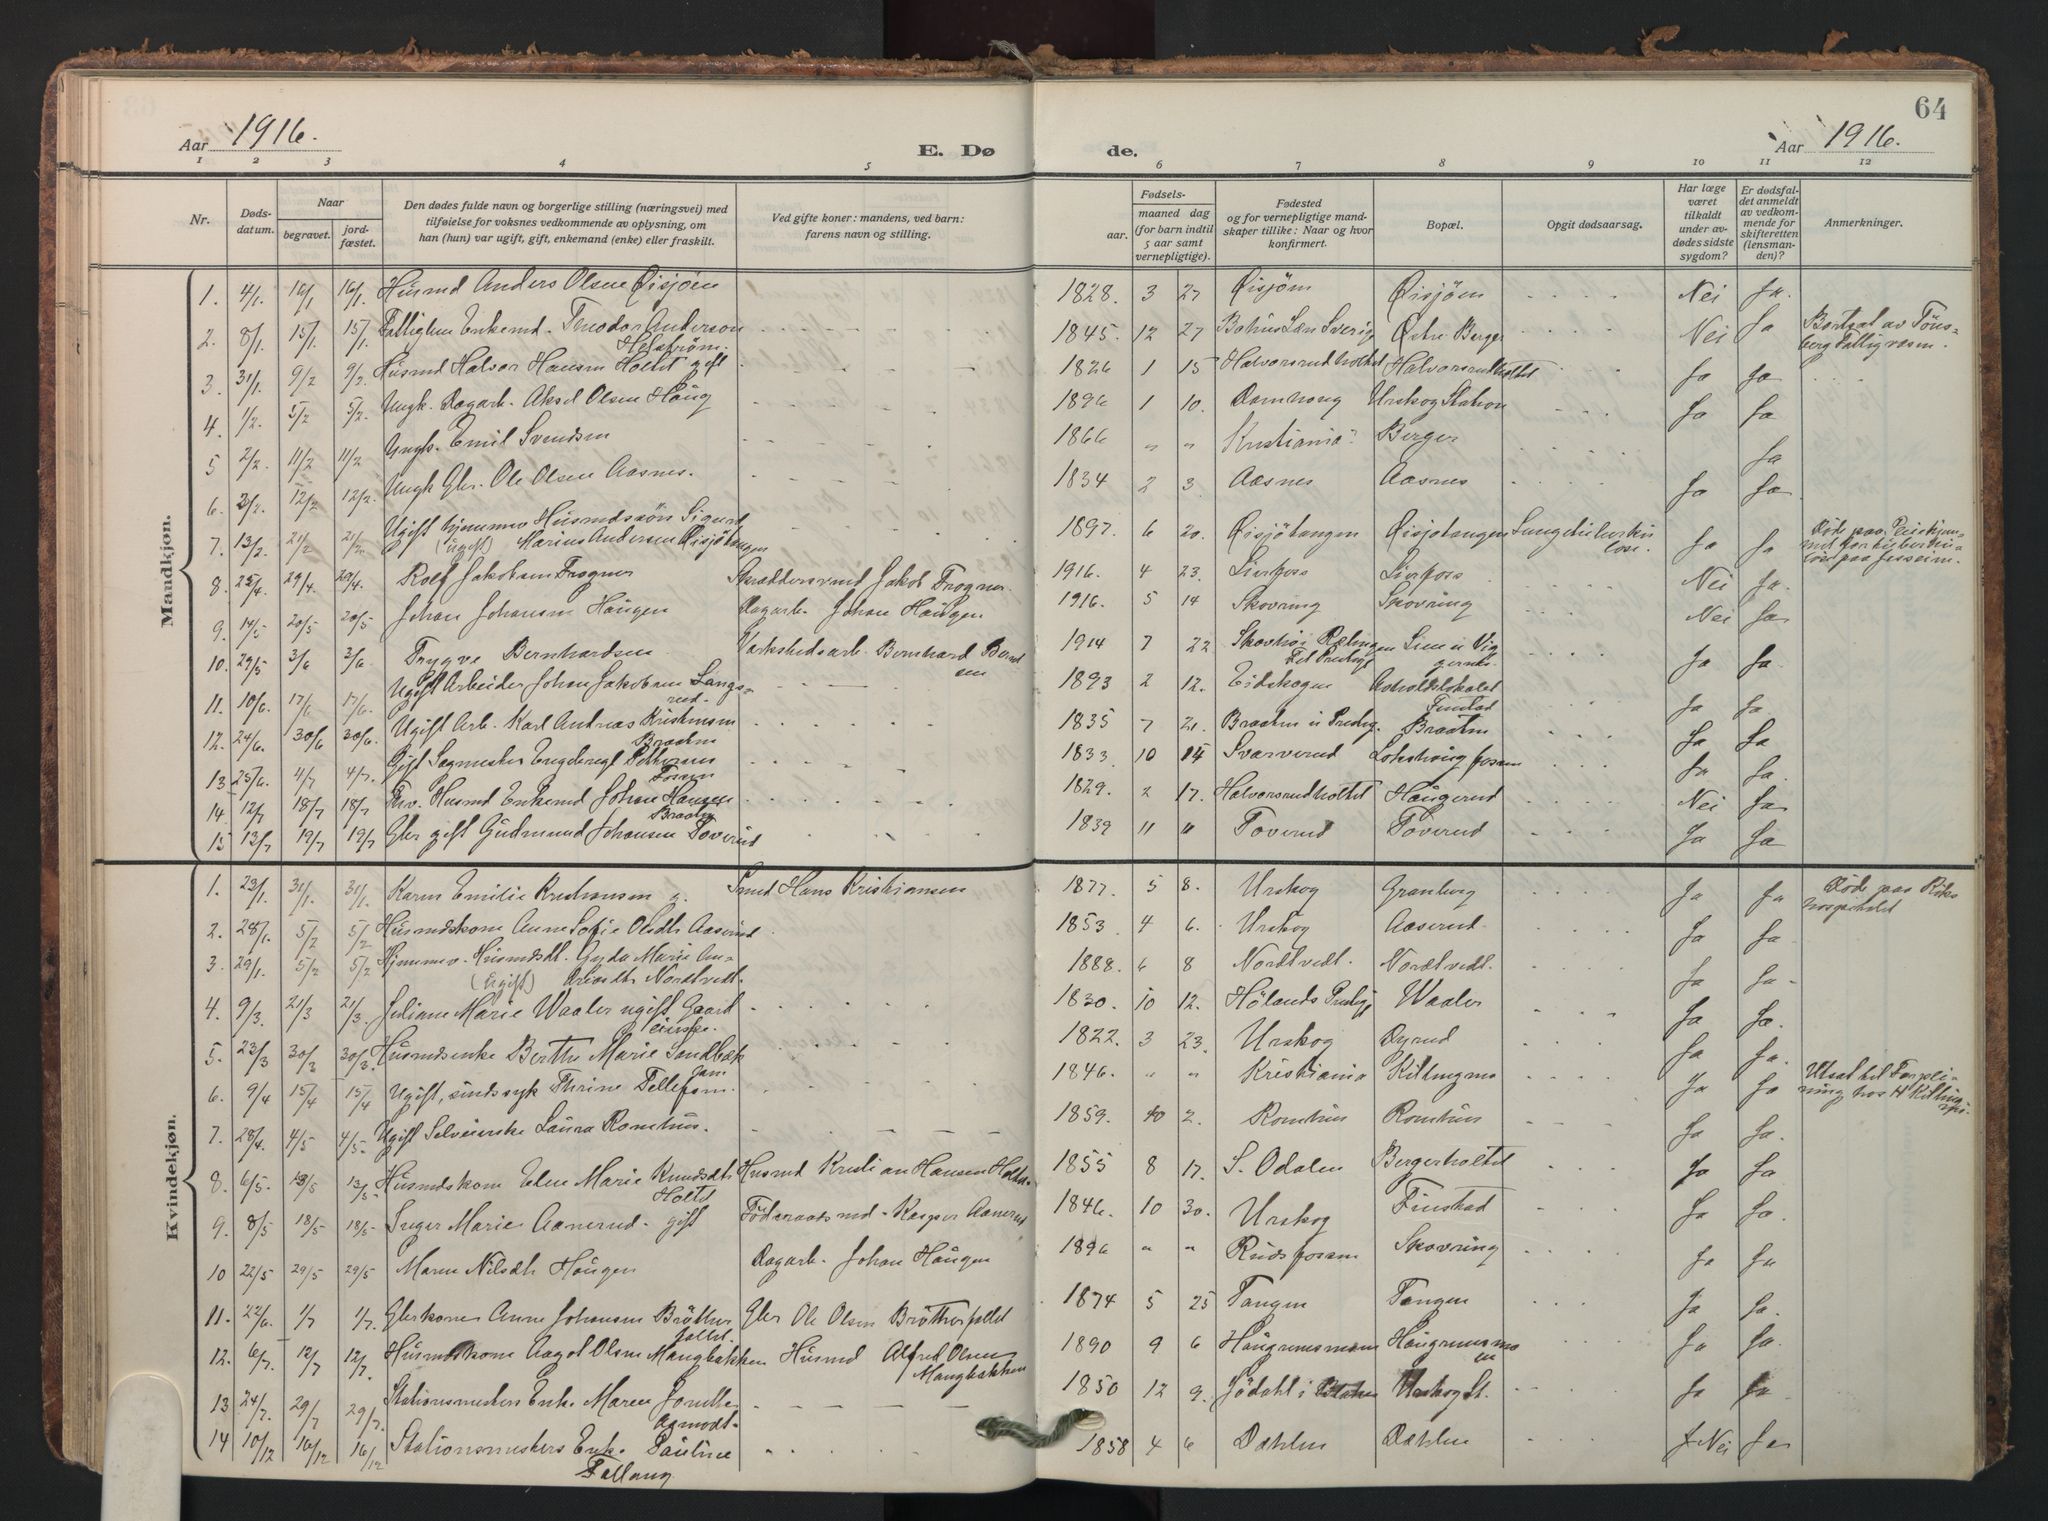 64
Aar 1916.
E. Dø
de.
Aar 1916.
1 2 3 4 5
6 7 8 9 10 11 12
Nr.
Døds-
datum.
Naar
begravet.
jord-
fæstet.
Den dødes fulde navn og borgerlige stilling (næringsvei) med
tilføielse for voksnes vedkommende av oplysning, om
han (hun) var ugift, gift, enkemand (enke) eller fraskilt.
Ved gifte koner: mandens, ved barn:
farens navn og stilling.
Fødsels-
aar.
maaned dag
(for barn indtil
5 aar samt
vernepligtige).
Fødested
og for vernepligtige mand-
skaper tillike: Naar og hvor
konfirmert.
Bopæl.
Opgit dødsaarsag.
Har læge
været
tilkaldt
under av-
dødes sidste
sygdom?
Er dødsfal-
det anmeldt
av vedkom-
mende for
skifteretten
(lensman-
den)?
Anmerkninger.
Mandkjøn.
1. 4/1. 16/1 16/1. Husmd Anders Olsen Øisjøen 1828. 3 27 Øisjøen Øisjøen Nei Ja.
2. 8/1. 15/1. 15/1. Fattiglem Enkemd. Teodor Anderson
Helström. 1845. 12 27 Bahus Len Sverig Østre Berger Nei Ja Bortsat av Töns-
berg Fattigvæsen.
3. 31/1. 9/2 9/2. Husmd Halvor Hansen Holtet gift 1826 1 15 Halvorsrudholtet Halvorsrudholtet Ja Ja
4. 1/2. 5/2 5/2. Ungk. Dagarb. Aksel Olsen Haug 1896 1 10. Urskog Station Ja Ja
5 2/2. 11/2 11/2 Ungk. Emil Svendsen 1866 " " Kristiania Berger Ja
6. 3/2. 12/2 12/2. Ungk Gbr. Ole Olsen Aasnes. 1834 2 3. Aasnes Aasnes Ja Ja
7. 13/2. 21/2 21/2. Ugift hjemmev Husmdssön Sigurd
(ugift) Marius Andersen Øisjøtangen 1897. 6 20. Øisjøtangen Øisjøtangen Lungetuberku
lose. Ja Ja Døde paa Pleiehjem-
met for tuberku-
lose paa Jessheim.
8. 25/4. 29/4. 29/4. Rolf Jakobsen Frogner Skræddersvend Jakob Frogner. 1916. 4 23. Lierfoss Lierfoss Nei Ja.
9. 14/5 20/5 20/5 Johan Johansen Haugen Dagarb. Johan Haugen 1916. 5 14 Skovring Skovring Nei Ja
10. 29/5 3/6 3/6 Trygve Bernhardsen. Værkstedsarb. Bernhard Bernd
sen 1914 7 22 Ja Ja
11. 10/6. 17/6 17/6. Ugift Arbeider Johan Jakobsen Langs-
rud. 1893 2 12. Eidskogen Finstad Ja Ja.
12. 24/6. 30/6 30/6. Ugift Arb. Karl Andreas Kristensen
Braaten 1835 7 21. Braaten Ja Ja
13 25/6. 4/7 4/7. Gift Sagmester Engebregt Pettersen
Fossen 1833 10 14 Svarverud Ja Ja.
14. 12/7 18/7 18/7. Husmd Enkemd Johan Hansen
Braaten 1829. 2 17. Halvorsrudholtet Haugerud Nei Ja
15 13/7 19/7 19/7 Gbr gift Gudmund Johansen Toverud 1839 11 11 Toverud Toverud Ja Ja
Kvindekjøn.
1. 23/1. 31/1. 31/1. Karen Emilie Kristiansen g. Smed Hans Kristiansen 1877. 5 8. Urskog Granberg Ja Ja Døde paa Riks
hospitalet
2. 28/1. 5/2 5/2 Husmdskone Anne Sofie Olsdtr Aaserud 1853. 4 6. Urskog Aaserud. Ja Ja.
3. 29/1. 5/2 5/2 Hjemmev. Husmdsdt. Gyda Marie An-
(Ugift) Nordtvedt. 1888. 6 8 Nordtvedt. Nordtvedt. Ja Ja
4. 9/3. 21/3 21/3. Juliane Marie Waaler ugift Gaard 1830. 10 12. Hølands Prestgj Waaler Ja Ja.
5. 23/3 30/3 30/3. Husmdsenke Berthe Marie Sandbæk 1822. 3 23. Urskog Dyrud Ja Ja.
6. 9/4 15/4 15/4 Ugift, sindssyk Thrine Tellefsen. 1846. " " Kristiania Killingmo Ja Ja Utsat til Forplei-
ning hos H Killing
mo.
7. 28/4. 4/5 4/5. Ugift Selveierske Laura Romhus. 1859. 10 2. Romhus Romhus Ja Ja.
8. 6/5. 13/5 13/5. Husmdskone Elen Marie Knudsdtr
Holtet Husmd Kristian Hansen Holtet. 1855 8 17. S. Odalen Bergerholtet Ja Ja
9. 8/5 18/5 18/5. Inger Marie Aanerud. gift Föderaadsmd. Kasper Aanerud 1846. 10 30. Urskog Finstad Ja Ja.
10 22/5 29/5 29/5 Maren Nilsdtr Haugen Dagarb. Johan Haugen 1896 " " Rudsfossen Skovring Ja Ja
11. 22/6. 1/7 1/7. Gbrkone Anne Johansen Bröther
fallet. Gbr Ole Olsen Brötherfallet 1874 5 25 Tangen Tangen Ja Ja.
12. 6/7. 12/7 12/7. Husmdskone Aagot Olsen Mangbakken Husmd Alfred Olsen
Mangbakken 1890 9 6 Ja Ja.
13 24/7. 29/7 29/7. Stationsmesters Enke Maren
Aamodt. 1850 12 9. Urskog St. Ja Ja
14 10/12 16/12 16/12 Stationsmesters Enke Pauline
Fallang 1858 4 6 Dæhlen Dæhlen Nei Ja